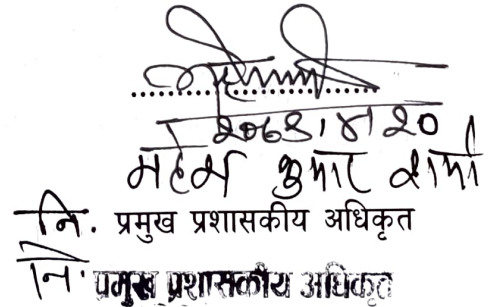 महेश कुमार शर्मा
नि. प्रमुख प्रशासकीय अधिकृत
नि. प्रमुख प्रशासकीय अधिकृत